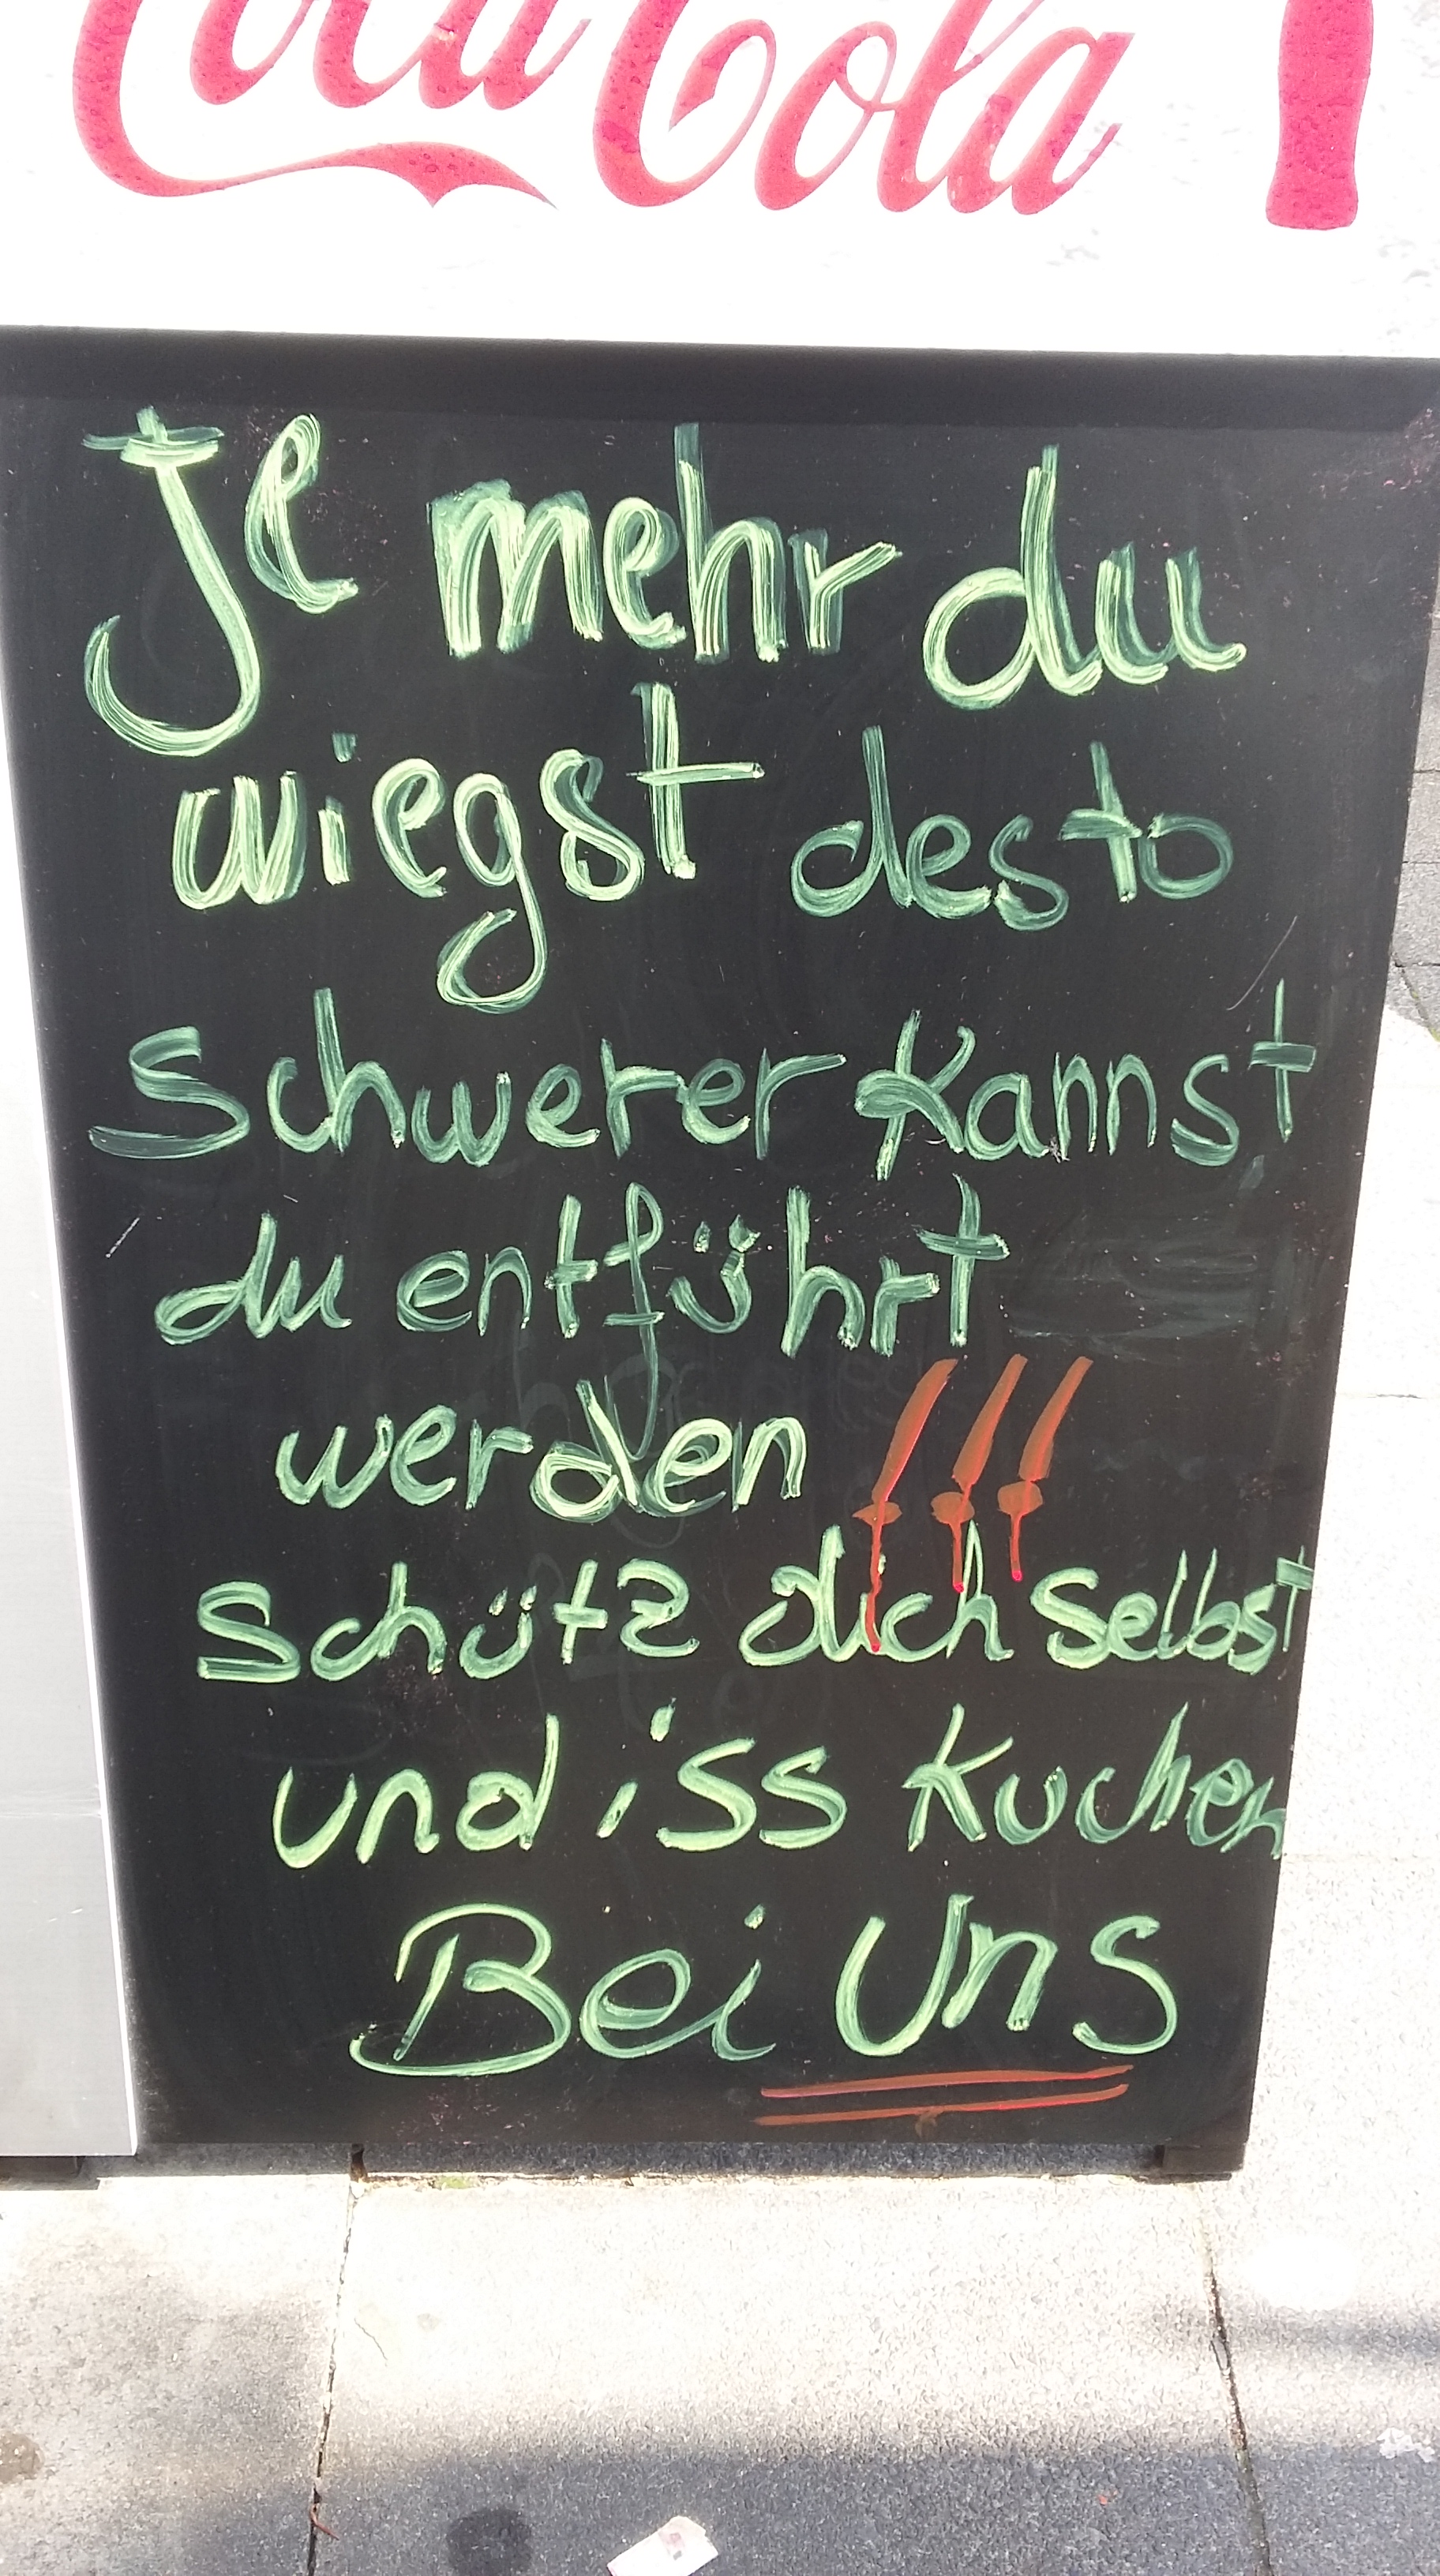 Coca-Cola
Je mehr du
wiegst desto
Schwerer kannst
du entführt
werden !!!
Schütz dich selbst
und iss Kuchen
Bei Uns